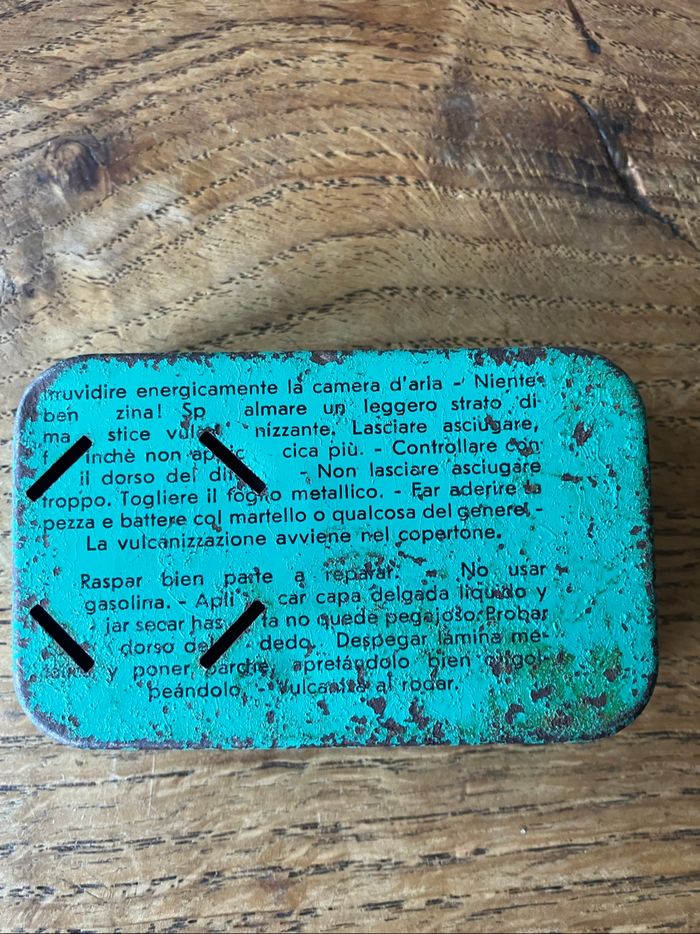 ruvidire energicamente la camera d'aria - Niente
ben zina! Sp almare un leggero strato di
ma stice nizzante. Lasciare asciugare,
inchè non cica più. - Controllare con
il dorso del - Non lasciare asciugare
troppo. Togliere il foglio metallico. - Far aderire la
pezza e battere col martello o qualcosa del genere. -
La vulcanizzazione avviene nel copertone.
Raspar bien parte a reparar. - No usar
gasolina. - Apli car capa delgada liquido y
jar secar has ta no quede pegajoso. Probar
dorso dedo. Despegar lámina me-
y poner parche, apretándolo bien
peándolo. - Vulcaniza al rodar.